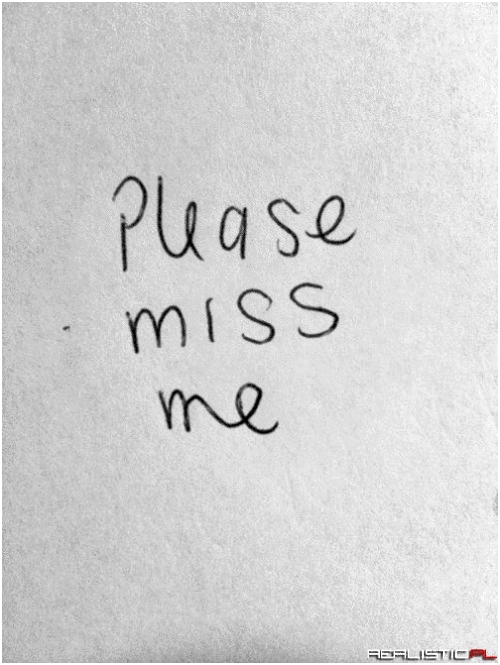 Please
miss
me
REALISTICPL